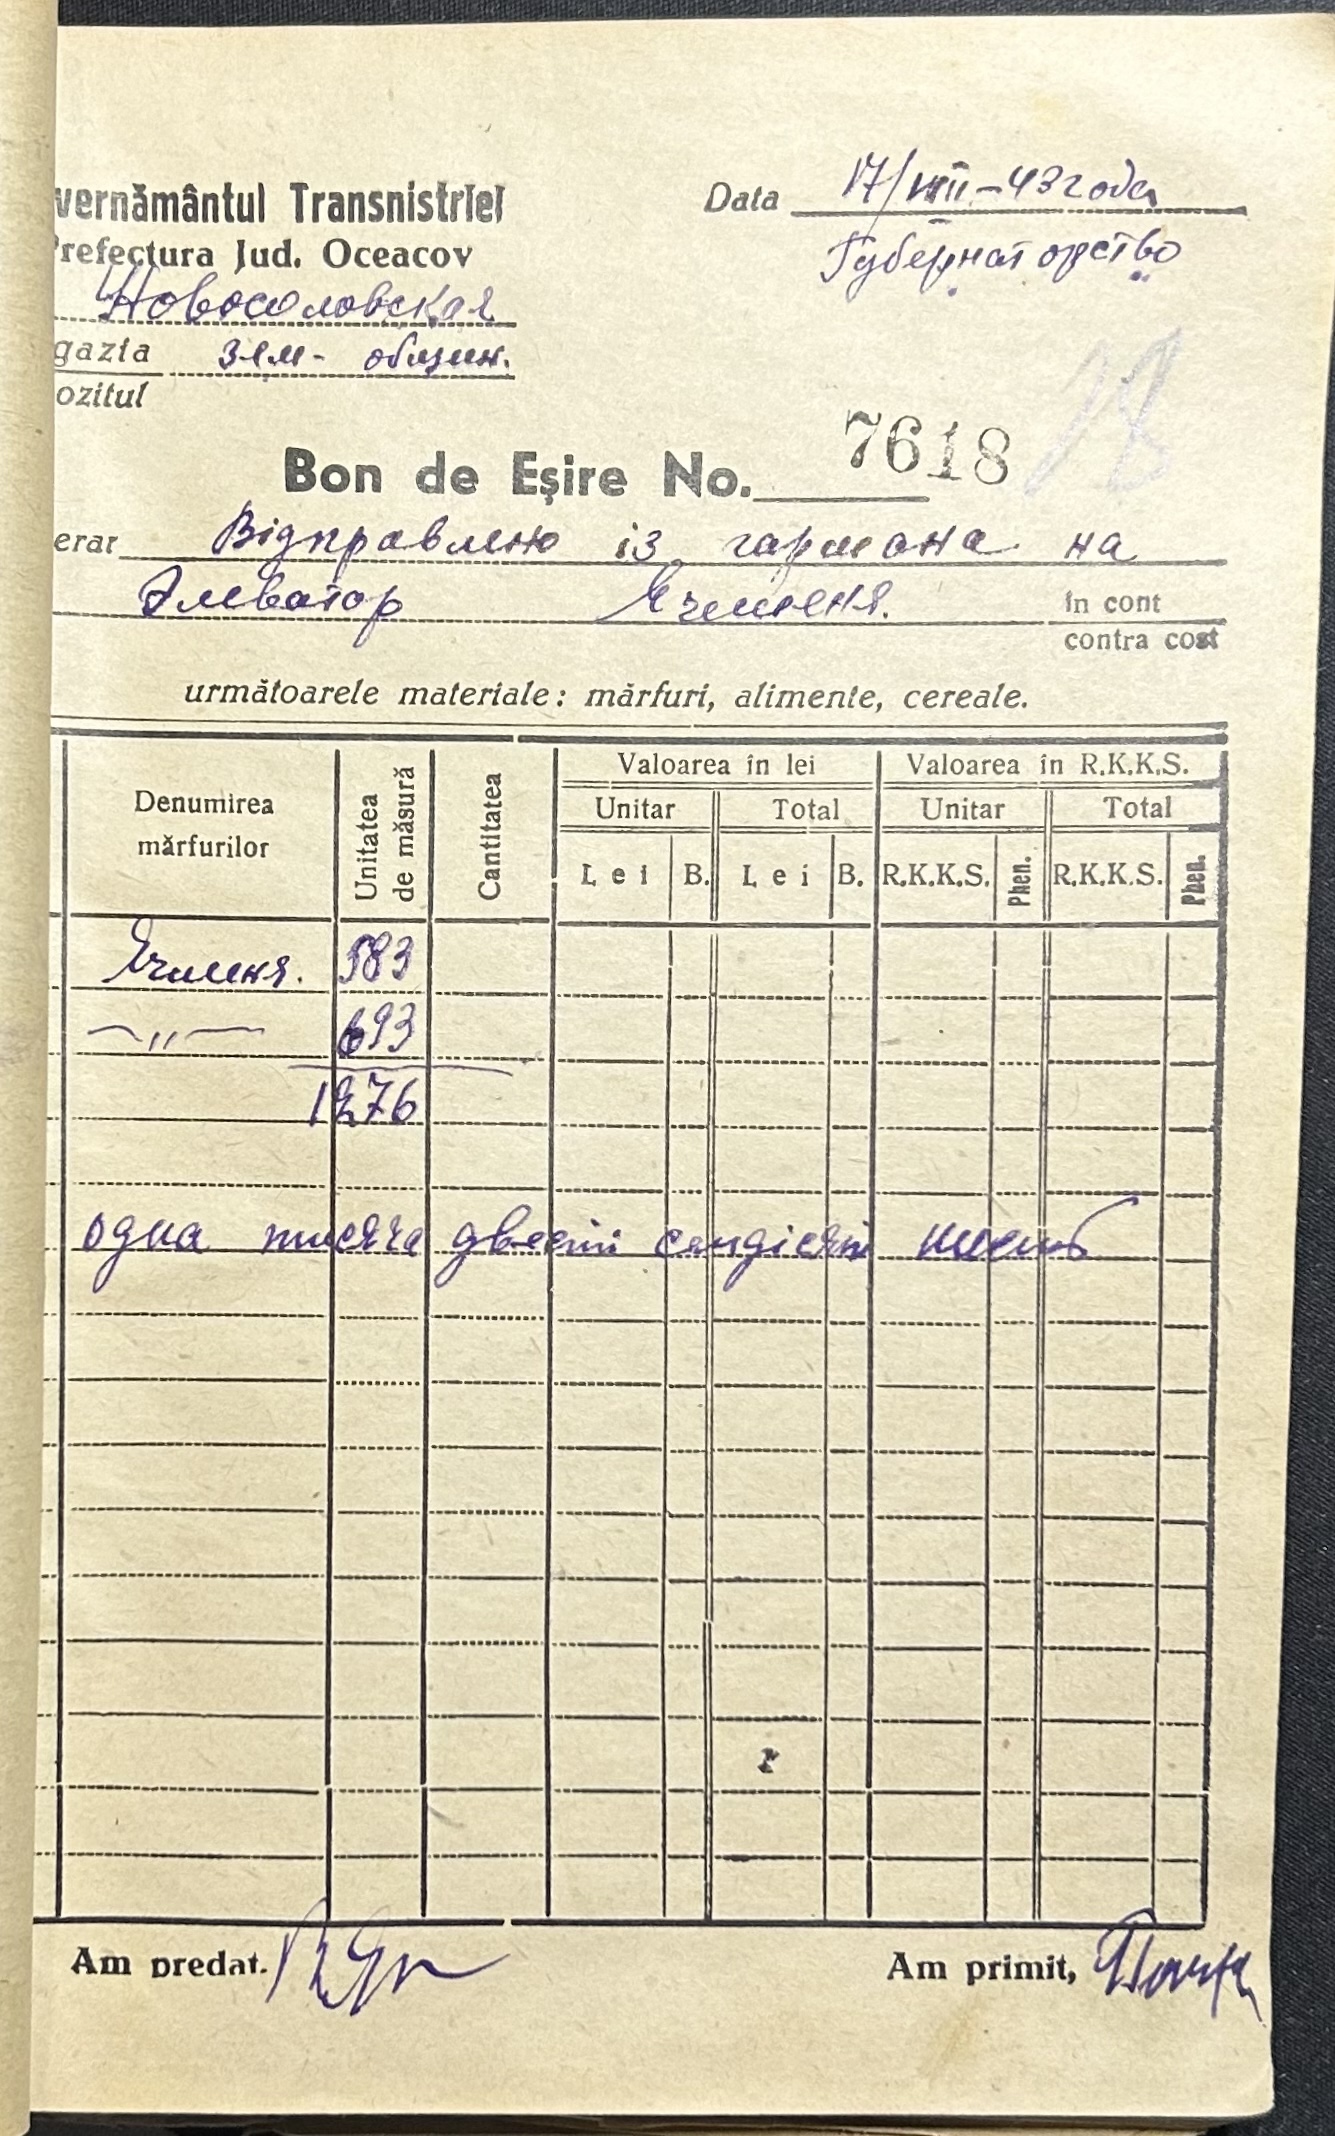 vernământul Transnistriei
Data 17/VIII-43 года
Prefectura Jud. Oceacov
Губернаторство
Новосоловская
gazia зем- общин.
ozitul
18
Bon de Eșire No. 7618
erar Відправлено із гармана на
Элеватор Ячменя. în cont
contra cost
următoarele materiale: mărfuri, alimente, cereale.
Denumirea mărfurilor Unitatea de măsură Cantitatea Valoarea în lei Valoarea în R.K.K.S.
Unitar Total Unitar Total
Lei B. Lei B. R.K.K.S. Phen. R.K.K.S. Phen.
Ячменя. 583
—„— 693
1276
одна тисяча двести семдісят шесть
Am predat. Am primit,